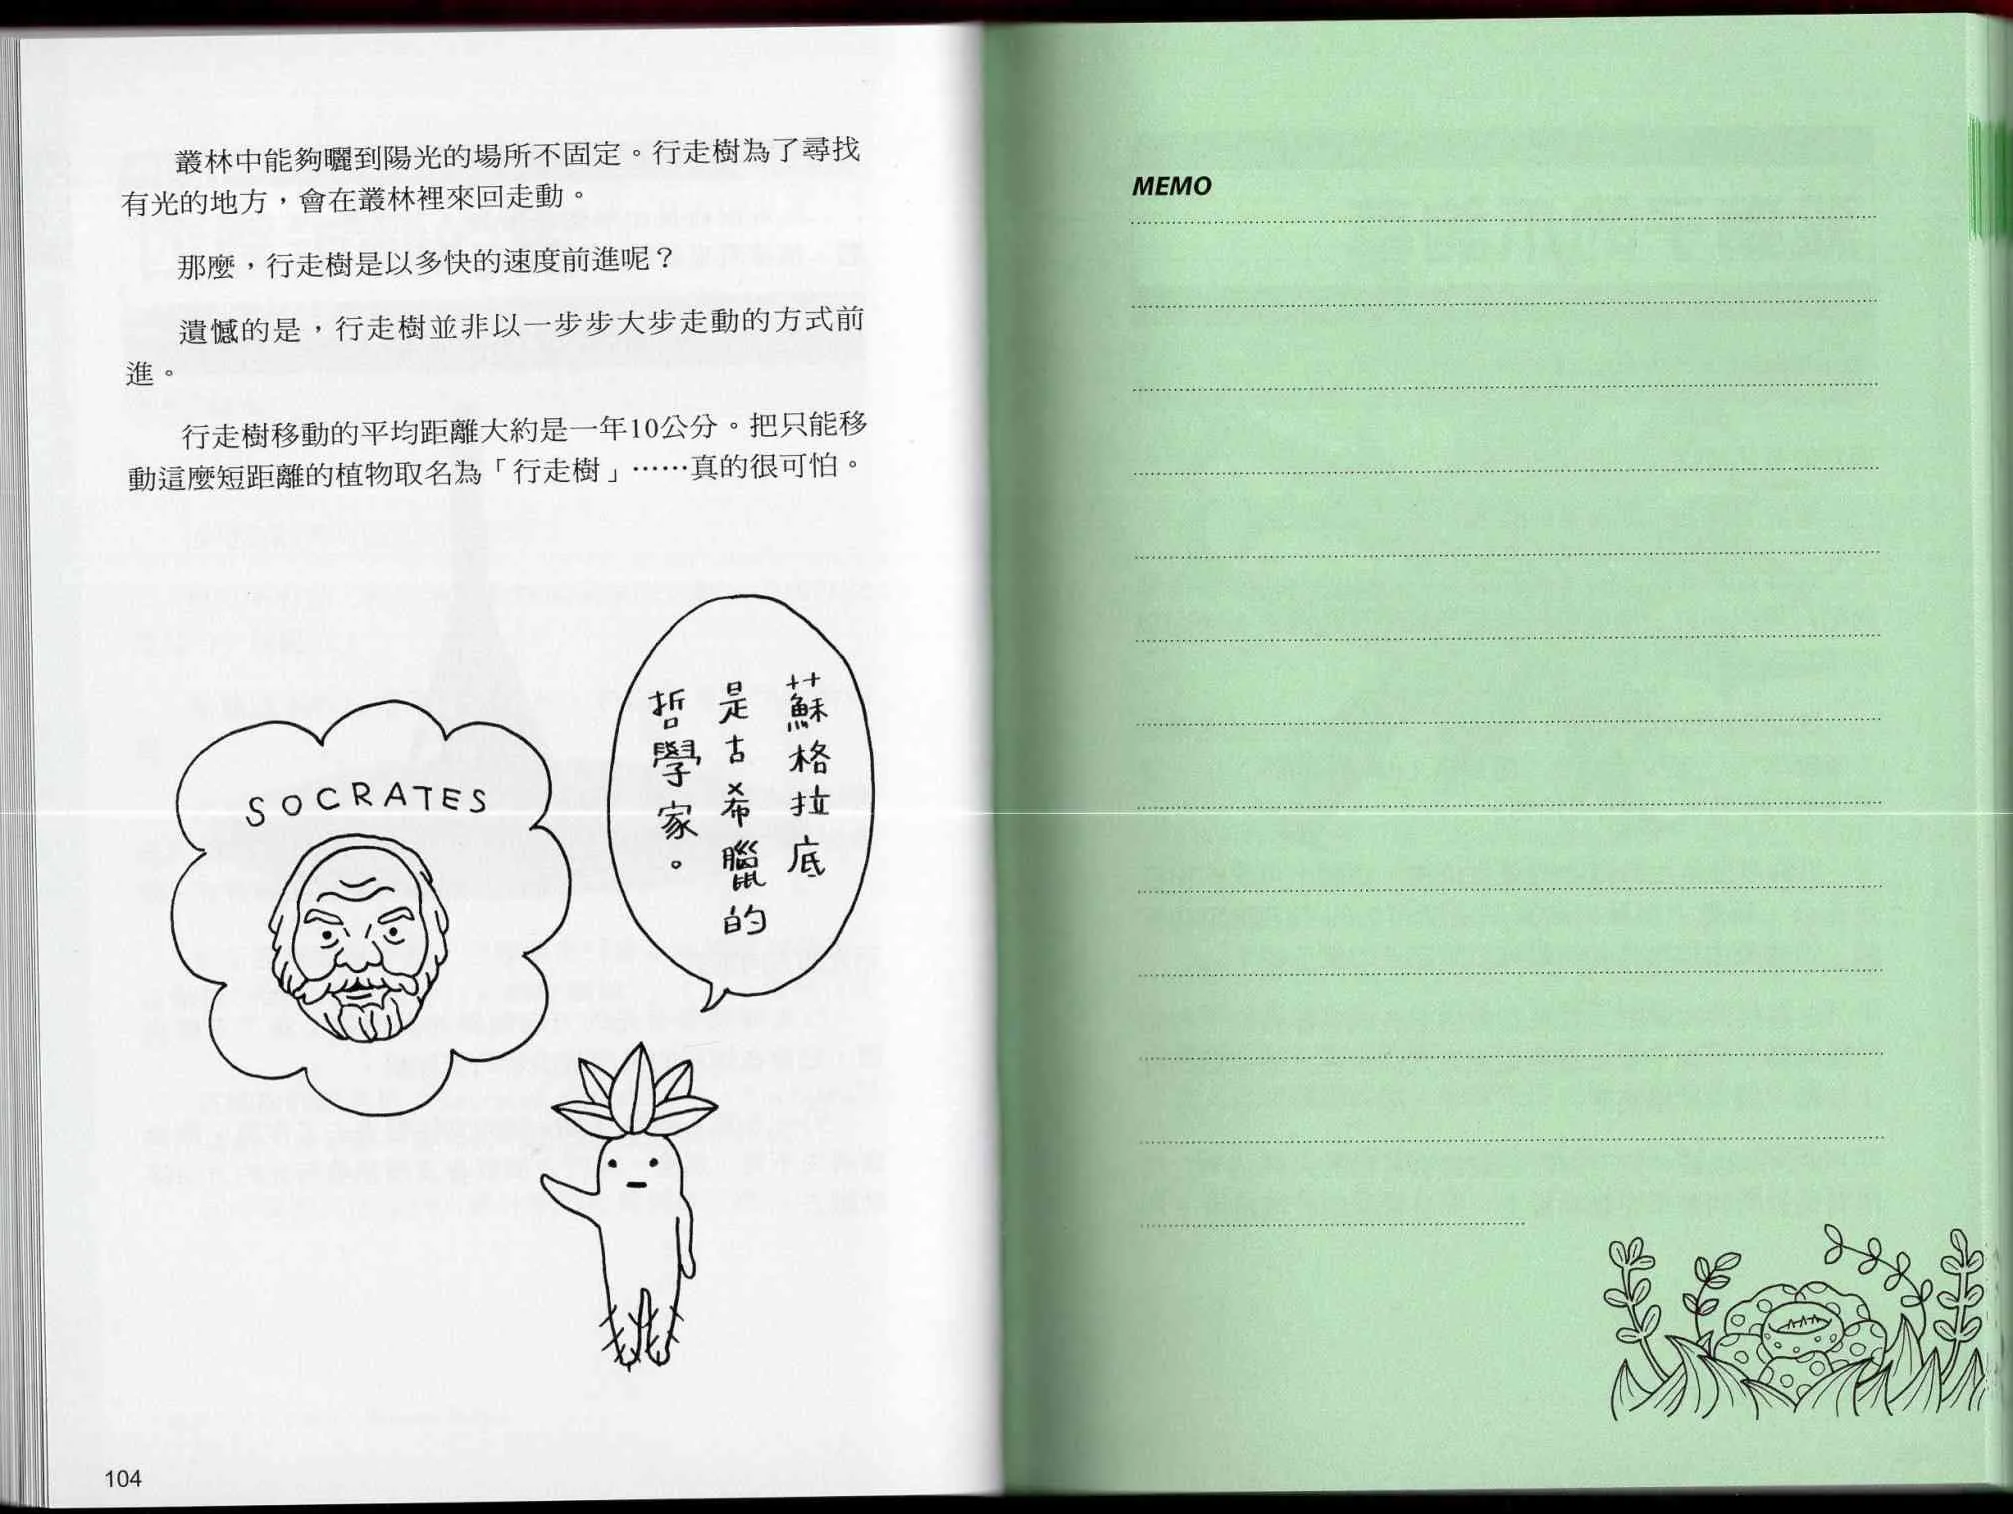 叢林中能夠曬到陽光的場所不固定。行走樹為了尋找
有光的地方，會在叢林裡來回走動。
那麼，行走樹是以多快的速度前進呢？
遺憾的是，行走樹並非以一步步大步走動的方式前
進。
行走樹移動的平均距離大約是一年10公分。把只能移
動這麼短距離的植物取名為「行走樹」……真的很可怕。
蘇格拉底
是古希臘的
哲學家。
SOCRATES
104
MEMO